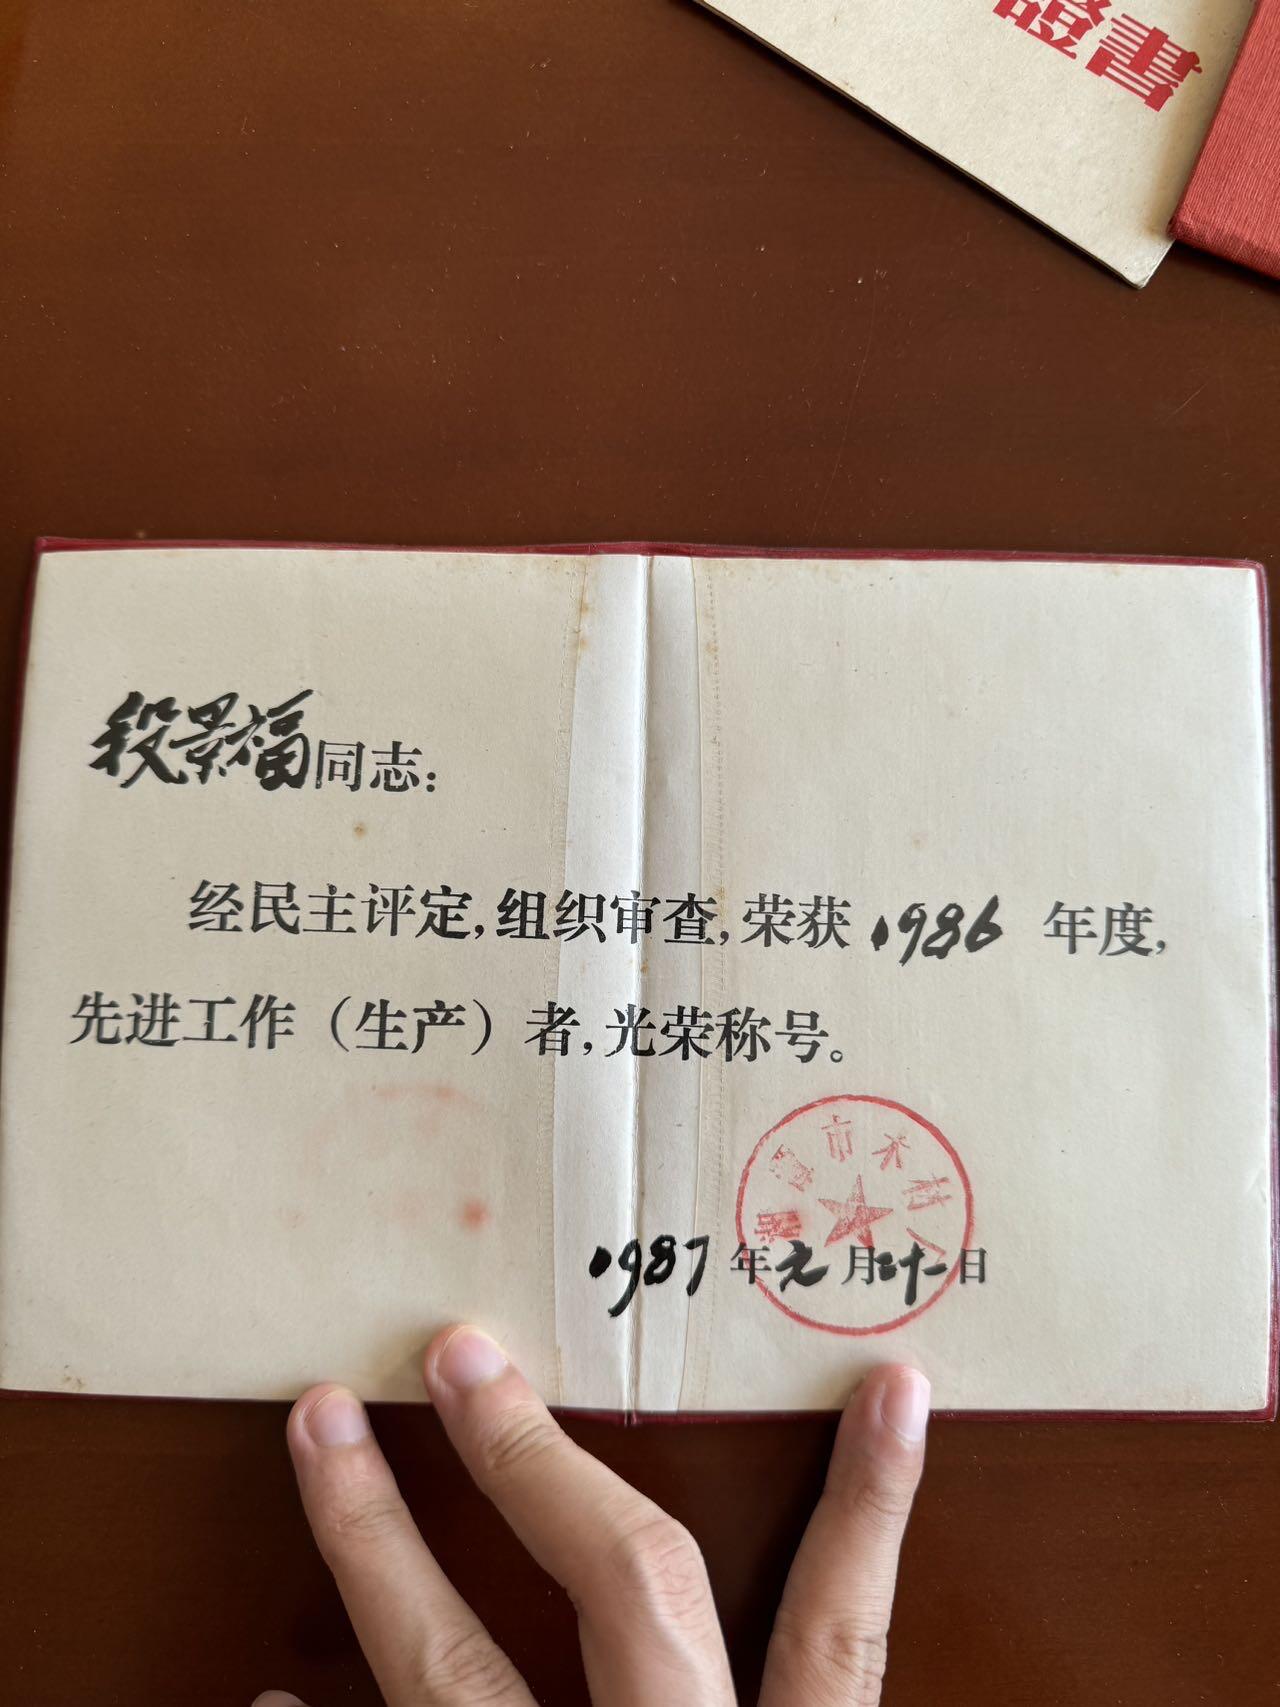 證書
段景福同志：
经民主评定,组织审查,荣获1986年度,
先进工作（生产）者,光荣称号。
湘潭市木材公
1987年元月二十一日